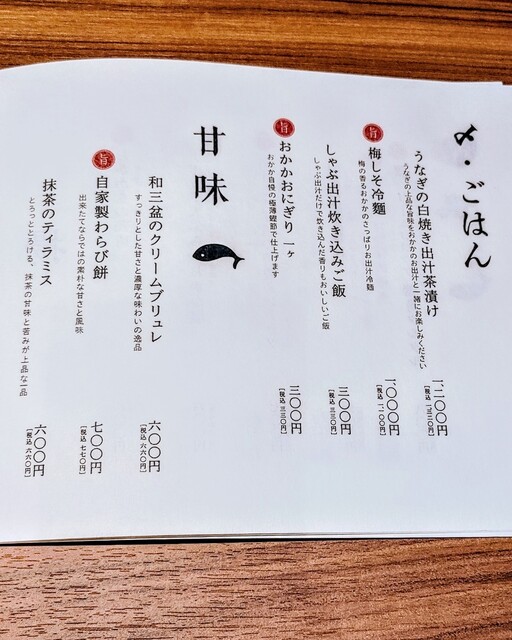 〆・ごはん
うなぎの白焼き出汁茶漬け
うなぎの上品な旨味をおかかのお出汁と一緒にお楽しみください
一、二〇〇円
［税込 一、三二〇円］
旨
梅しそ冷麺
梅の香るおかかのさっぱりお出汁冷麺
一、〇〇〇円
［税込 一、一〇〇円］
しゃぶ出汁炊き込みご飯
しゃぶ出汁だけで炊き込んだ香りもおいしいご飯
三〇〇円
［税込 三三〇円］
旨
おかかおにぎり 一ヶ
おかか自慢の極薄鰹節で仕上げます
三〇〇円
［税込 三三〇円］
甘味
和三盆のクリームブリュレ
すっきりとした甘さと濃厚な味わいの逸品
六〇〇円
［税込 六六〇円］
旨
自家製わらび餅
出来たてならではの素朴な甘さと風味
七〇〇円
［税込 七七〇円］
抹茶のティラミス
とろっととろける。抹茶の甘味と苦みが上品な一品
六〇〇円
［税込 六六〇円］